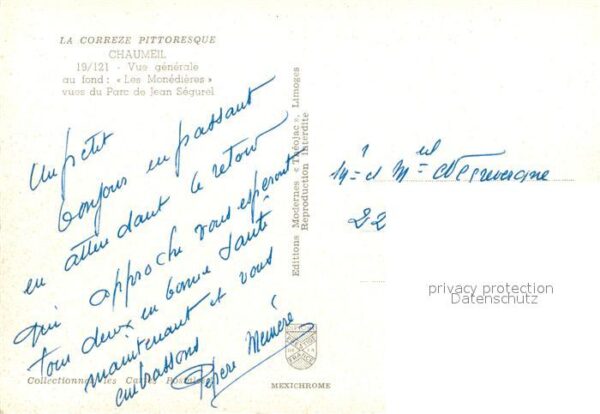 LA CORREZE PITTORESQUE
CHAUMEIL
19/121 - Vue générale
au fond : « Les Monédières »
vues du Parc de Jean Ségurel
Un petit
bonjour en passant
en attendant le retour
qui approche vous espérant
tous deux en bonne santé
maintenant et vous
embrassons
Pépère Mémère
Collectionnez les Cartes Postales
Editions Modernes « Théojac », Limoges
Reproduction Interdite
MEXICHROME
22
privacy protection
Datenschutz